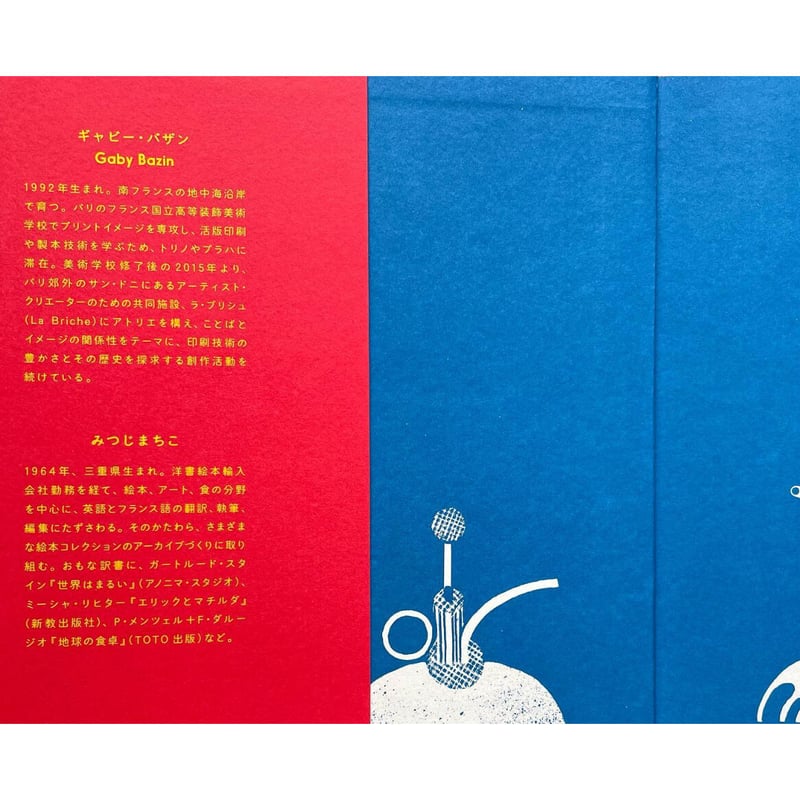 ギャビー・バザン
Gaby Bazin
1992年生まれ。南フランスの地中海沿岸
で育つ。パリのフランス国立高等装飾美術
学校でプリントイメージを専攻し、活版印刷
や製本技術を学ぶため、トリノやプラハに
滞在。美術学校修了後の2015年より、
パリ郊外のサン・ドニにあるアーティスト・
クリエーターのための共同施設、ラ・ブリシュ
(La Briche)にアトリエを構え、ことばと
イメージの関係性をテーマに、印刷技術の
豊かさとその歴史を探求する創作活動を
続けている。
みつじまちこ
1964年、三重県生まれ。洋書絵本輸入
会社勤務を経て、絵本、アート、食の分野
を中心に、英語とフランス語の翻訳、執筆、
編集にたずさわる。そのかたわら、さまざま
な絵本コレクションのアーカイブづくりに取り
組む。おもな訳書に、ガートルード・スタ
イン『世界はまるい』(アノニマ・スタジオ)、
ミーシャ・リヒター『エリックとマチルダ』
(新教出版社)、P・メンツェル+F・ダルー
ジオ『地球の食卓』(TOTO出版)など。